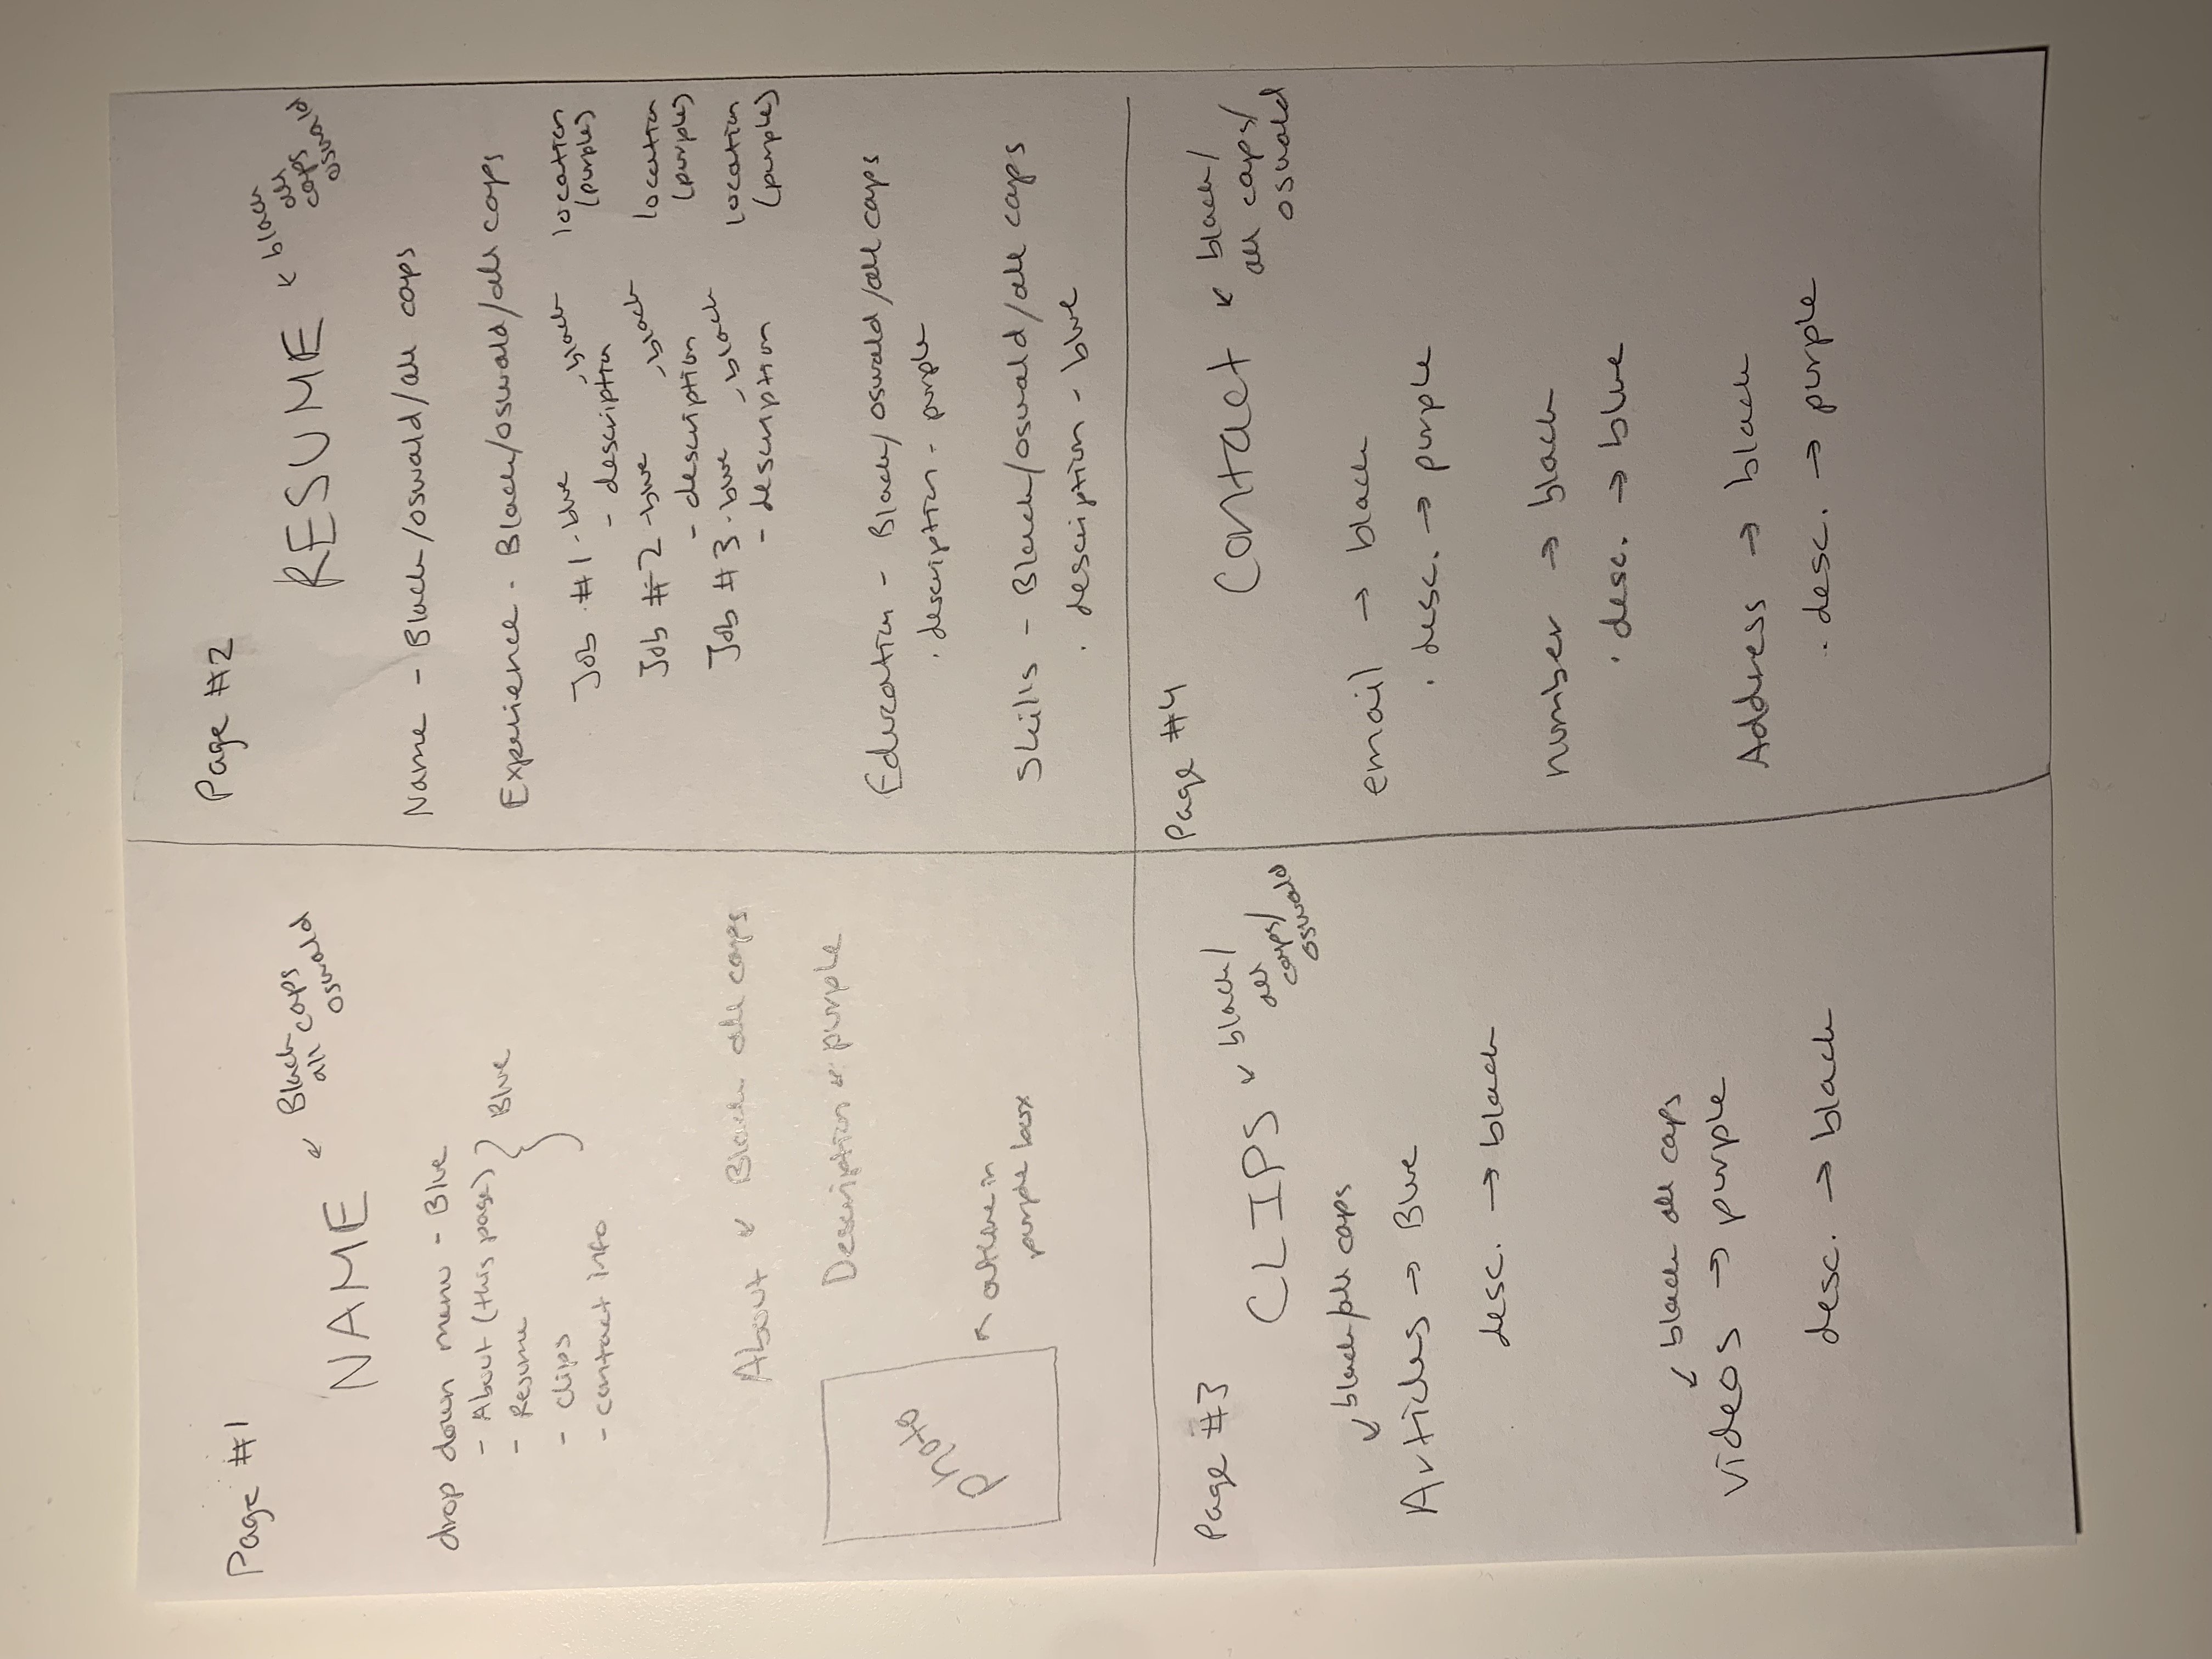 Page #1
NAME
Black
all caps
oswald
drop down menu - Blue
- About (this page)
- Resume
- clips
- contact info
Blue
About
Black all caps
Description
purple
photo
outline in
purple box
Page #2
RESUME
black
all
caps
oswald
Name - Black/oswald/all caps
Experience - Black/oswald/all caps
Job #1 - blue
- description
- black
location
(purple)
Job #2 - blue
- description
- black
location
(purple)
Job #3 - blue
- description
- black
location
(purple)
Education - Black/oswald/all caps
· description - purple
Skills - Black/oswald/all caps
· description - blue
Page #3
CLIPS
black/
all
caps/
oswald
black/all caps
Articles → Blue
desc. → black
black all caps
videos → purple
desc. → black
Page #4
Contact
black/
all caps/
oswald
email → black
· desc. → purple
number → black
· desc. → blue
Address → black
· desc. → purple